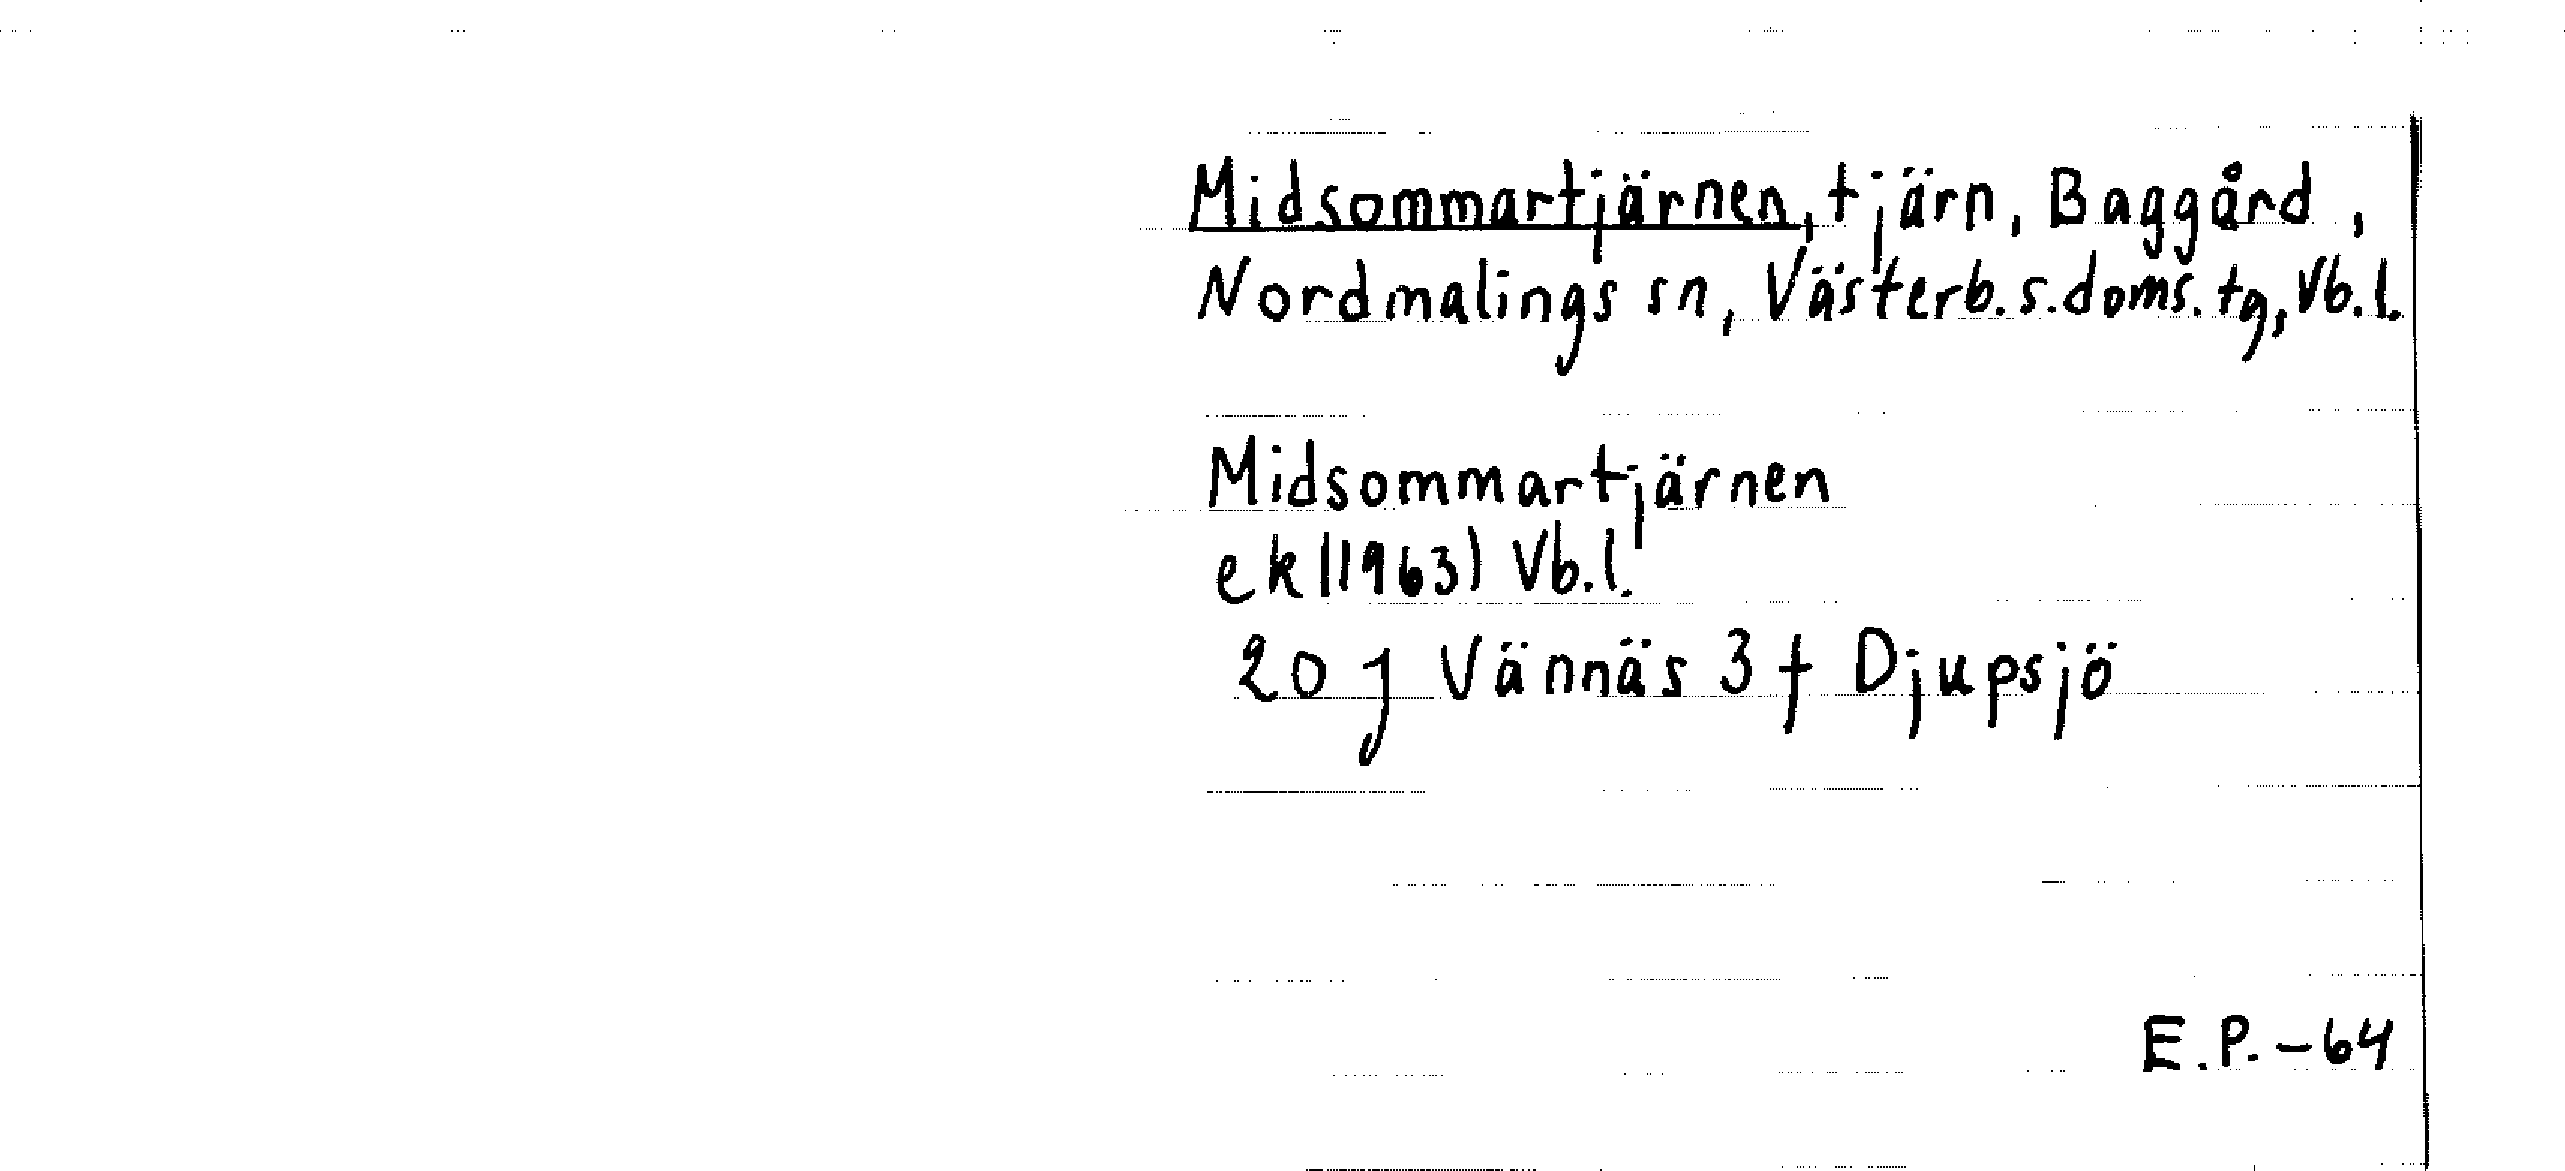 Midsommartjärnen, tjärn, Baggård,
Nordmalings sn, Västerb.s.doms.tg, Vb.l.
Midsommartjärnen
ek (1963) Vb.l.
20 J Vännäs 3 f Djupsjö
E.P. -64